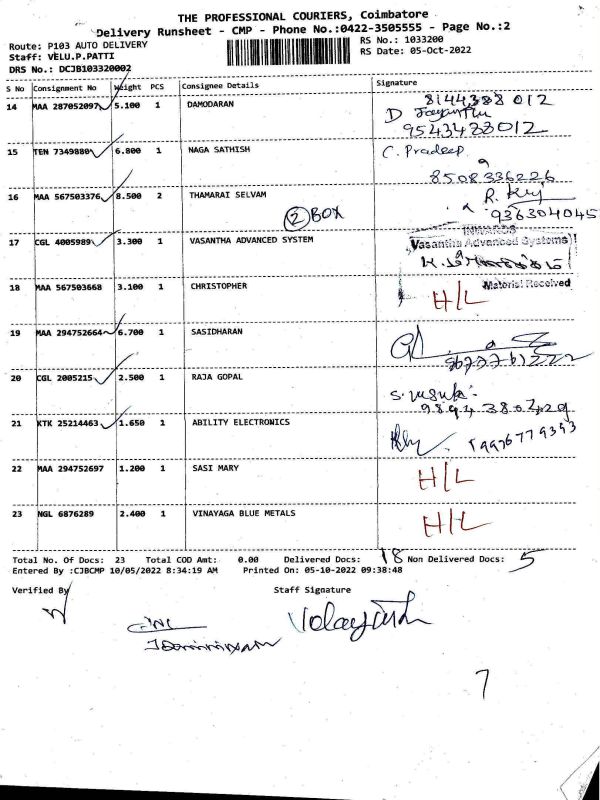 THE PROFESSIONAL COURIERS, Coimbatore
Delivery Runsheet - CMP - Phone No.:0422-3505555 - Page No.:2
Route: P103 AUTO DELIVERY RS No.: 1033200
Staff: VELU.P.PATTI RS Date: 05-Oct-2022
DRS No.: DCJB103320002
S No Consignment No Weight PCS Consignee Details Signature
14 MAA 287052097 5.100 1 DAMODARAN 8144388 012
D
9543488012
15 TEN 7349880 6.800 1 NAGA SATHISH C. Pradeep
8508336226
16 MAA 567503376 8.500 2 THAMARAI SELVAM R.
② BOX 936304045
17 CGL 4005989 3.300 1 VASANTHA ADVANCED SYSTEM INWARDS
Vasantha Advanced Systems
Material Received
18 MAA 567503668 3.100 1 CHRISTOPHER H/L
19 MAA 294752664 6.700 1 SASIDHARAN
20 CGL 2005215 2.500 1 RAJA GOPAL
21 KTK 25214463 1.650 1 ABILITY ELECTRONICS
22 MAA 294752697 1.200 1 SASI MARY H/L
23 NGL 6876289 2.400 1 VINAYAGA BLUE METALS H/L
Total No. Of Docs: 23 Total COD Amt: 0.00 Delivered Docs: 18 Non Delivered Docs: 5
Entered By :CJBCMP 10/05/2022 8:34:19 AM Printed On: 05-10-2022 09:38:48
Verified By Staff Signature
7